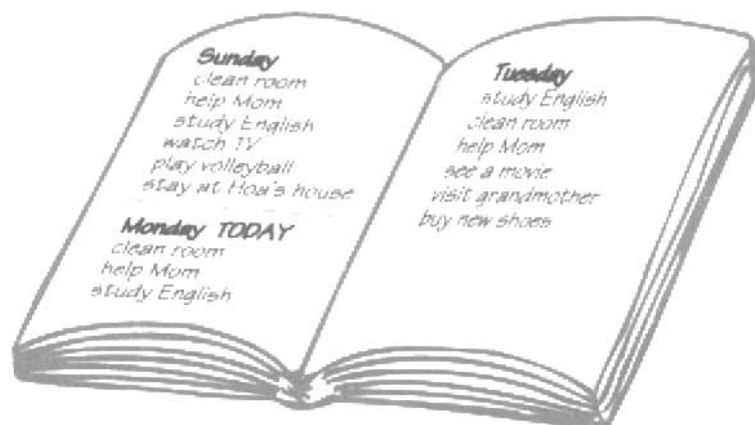 Sunday
clean room
help Mom
study English
watch TV
play volleyball
stay at Hoa's house
Monday TODAY
clean room
help Mom
study English
Tuesday
study English
clean room
help Mom
see a movie
visit grandmother
buy new shoes